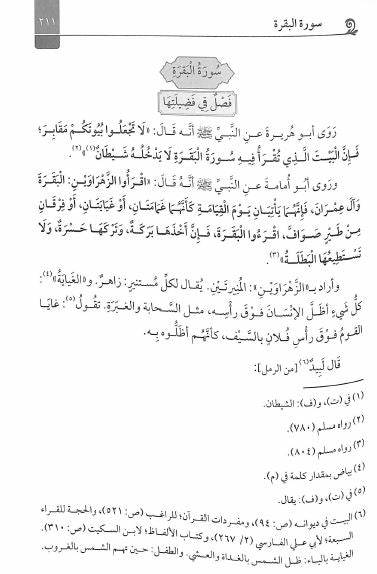 سورة البقرة ٢١١
سُورَةُ الْبَقَرَةِ
فَصْلٌ فِي فَضِيلَتِهَا
رَوَى أبو هريرة عن النَّبِيِّ ﷺ أنَّه قَالَ: «لَا تَجْعَلُوا بُيُوتَكُمْ مَقَابِرَ؛
فَإِنَّ الْبَيْتَ الَّذِي تُقْرَأُ فِيهِ سُورَةُ الْبَقَرَةِ لَا يَدْخُلُهُ شَيْطَانٌ(١)»(٢).
ورَوَى أبو أُمامة عن النَّبِيِّ ﷺ أنَّهُ قَالَ: «اقْرَأُوا الزَّهْرَاوَيْنِ: الْبَقَرَةَ
وَآلَ عِمْرَانَ، فَإِنَّهُمَا يَأْتِيَانِ يَوْمَ الْقِيَامَةِ كَأَنَّهُمَا غَمَامَتَانِ، أَوْ غَيَايَتَانِ، أَوْ فِرْقَانِ
مِنْ طَيْرٍ صَوَافَّ، اقْرَءُوا الْبَقَرَةَ، فَإِنَّ أَخْذَهَا بَرَكَةٌ، وَتَرْكَهَا حَسْرَةٌ، وَلَا
تَسْتَطِيعُهَا الْبَطَلَةُ»(٣).
وأراد بـ«الزَّهْرَاوَيْنِ»: الْمُنِيرَتَيْنِ. يُقَال لكلِّ مُستنيرٍ: زاهرٌ. و«الغَيَايَةُ»(٤):
كلُّ شَيْءٍ أَظَلَّ الإِنْسَانَ فَوْقَ رأسِهِ، مثل السَّحابة والغَبَرَةِ. تقُولُ(٥): غايَا
القومُ فوْقَ رأْسِ فُلَانٍ بالسَّيْف، كأنَّهم أظَلُّوه بِهِ.
قَال لَبِيدٌ(٦) [من الرمل]:
(١) في (ت)، و(ف): الشيطان.
(٢) رواه مسلم (٧٨٠).
(٣) رواه مسلم (٨٠٤).
(٤) بياض بمقدار كلمة في (م).
(٥) في (ت)، و(ف): يقال.
(٦) البيت في ديوانه (ص: ٩٤)، ومفردات القرآن؛ للراغب (ص: ٥٢١)، والحجة للقراء
السبعة؛ لأبي علي الفارسي (٢/ ٢٦٧)، وكتاب الألفاظ؛ لابن السكيت (ص: ٣١٠).
الغياية بالياء: ظل الشمس بالغداة والعشي. والطفل: حين تهم الشمس بالغروب.